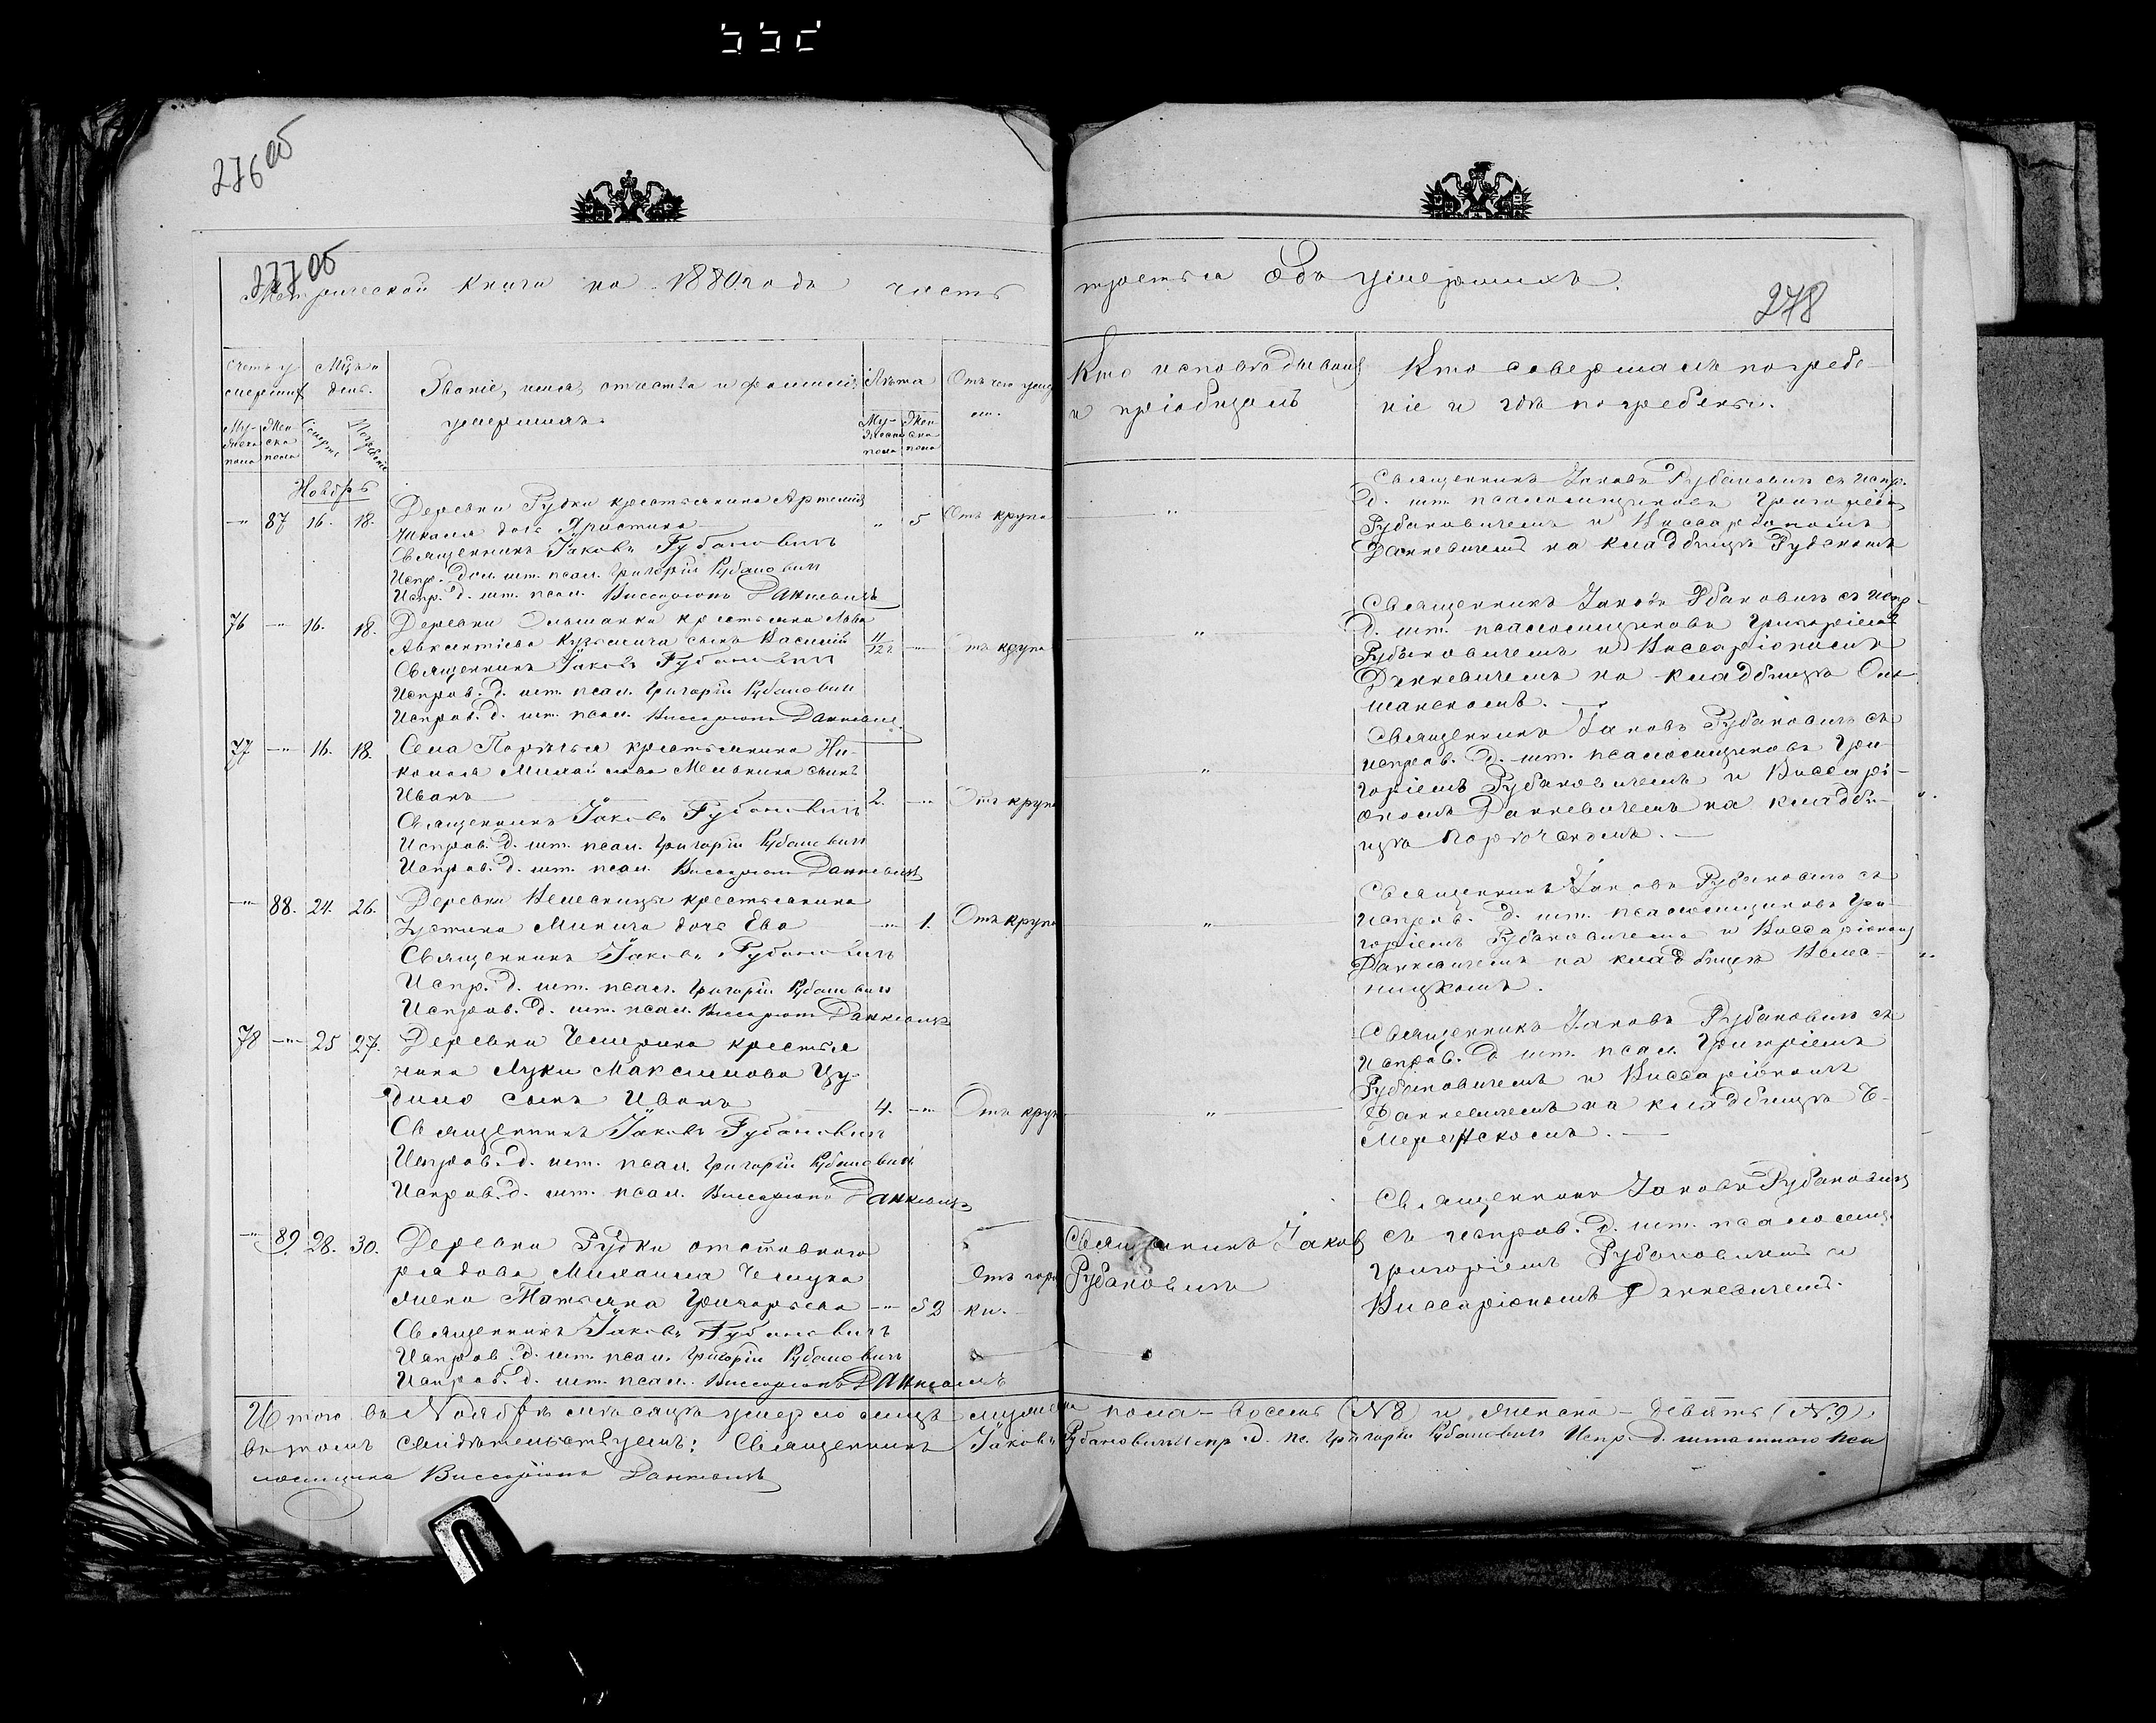 276 об
277 об
Метрической книги на 1880 годъ часть
третья объ умершихъ.
278
Счетъ умершихъ
Мѣць и день.
Званіе, имя, отчество и фамилія
умершихъ.
Лѣта
Отъ чего умеръ
Кто исповѣдывалъ
и пріобщалъ
Кто совершалъ погребе-
ніе и гдѣ погребены.
Мужеска пола
Женска пола
Смерти
Погребенія
Мужеска пола
Женска пола
Ноябрь
„ 87 16. 18.
Деревни Рудки крестьянина Артемія
дочь Христина „ 5 Отъ крупа
Священникъ Іаковъ Рубановичъ
Испр. дол. шт. псал. Григорій Рубановичъ
Испр. д. шт. псал. Виссаріонъ Данкевичъ
„
Священникъ Іаковъ Рубановичъ съ испр.
д. шт. псаломщиковъ Григоріемъ
Рубановичемъ и Виссаріономъ
Данкевичемъ на кладбищѣ Рудскомъ
76 „ 16. 18.
Деревни Ольшанки крестьянина Льва
Авксентіева Кузьмича сынъ Василій 11/12 „ Отъ крупа
Священникъ Іаковъ Рубановичъ
Исправ. д. шт. псал. Григорій Рубановичъ
Исправ. д. шт. псал. Виссаріонъ Данкевичъ
„
Священникъ Іаковъ Рубановичъ съ испр.
д. шт. псаломщиковъ Григоріемъ
Рубановичемъ и Виссаріономъ
Данкевичемъ на кладбищѣ Оль-
шанскомъ.
77 „ 16. 18.
Села Порѣчья крестьянина Ни-
колая Михайлова Мельника сынъ
Иванъ 2. „ Отъ крупа
Священникъ Іаковъ Рубановичъ
Исправ. д. шт. псал. Григорій Рубановичъ
Исправ. д. шт. псал. Виссаріонъ Данкевичъ
„
Священникъ Іаковъ Рубановичъ съ
исправ. д. шт. псаломщиковъ Гри-
горіемъ Рубановичемъ и Виссарі-
ономъ Данкевичемъ на кладби-
щѣ Порѣчскомъ.
„ 88. 24. 26.
Деревни Велесницы крестьянина
Устина Минича дочь Ева „ 1. Отъ крупа
Священникъ Іаковъ Рубановичъ
Испр. д. шт. псал. Григорій Рубановичъ
Исправ. д. шт. псал. Виссаріонъ Данкевичъ
„
Священникъ Іаковъ Рубановичъ съ
исправ. д. шт. псаломщиковъ Гри-
горіемъ Рубановичемъ и Виссаріономъ
Данкевичемъ на кладбищѣ Велес-
ницкомъ.
78 „ 25 27.
Деревни Чемерина крестья
нина Луки Максимова Цу-
дило сынъ Иванъ 4. „ Отъ крупа
Священникъ Іаковъ Рубановичъ
Исправ. д. шт. псал. Григорій Рубановичъ
Исправ. д. шт. псал. Виссаріонъ Данкевичъ
„
Священникъ Іаковъ Рубановичъ съ
исправ. д. шт. псал. Григоріемъ
Рубановичемъ и Виссаріономъ
Данкевичемъ на кладбищѣ Че-
меринскомъ.
„ 89. 28. 30.
Деревни Рудки отставного
рядова Михаила
жена Татьяна Григорьева „ 53
Отъ горя
чки.
Священникъ Іаковъ Рубановичъ
Исправ. д. шт. псал. Григорій Рубановичъ
Исправ. д. шт. псал. Виссаріонъ Данкевичъ
Священникъ Іаковъ
Рубановичъ
Священникъ Іаковъ Рубановичъ
съ исправ. д. шт. псаломщ.
Григоріемъ Рубановичемъ и
Виссаріономъ Данкевичемъ.
Итого въ Ноябрѣ мѣсяцѣ умерло лицъ мужеска пола – восемь (№ 8) и женска – девять (№ 9).
въ томъ свидѣтельствуемъ: Священникъ Іаковъ Рубановичъ Испр. д. пс. Григорій Рубановичъ Испр. д. штатного пса
ломщика Виссаріонъ Данкевичъ